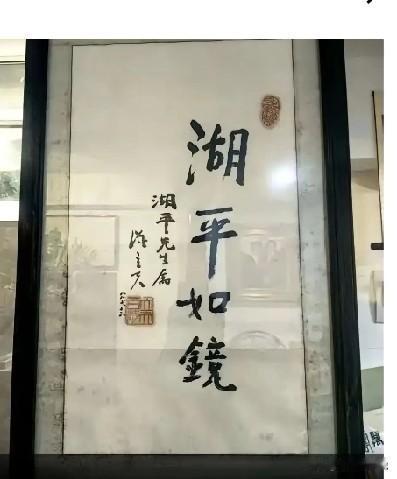 湖平如鏡
湖平先生属